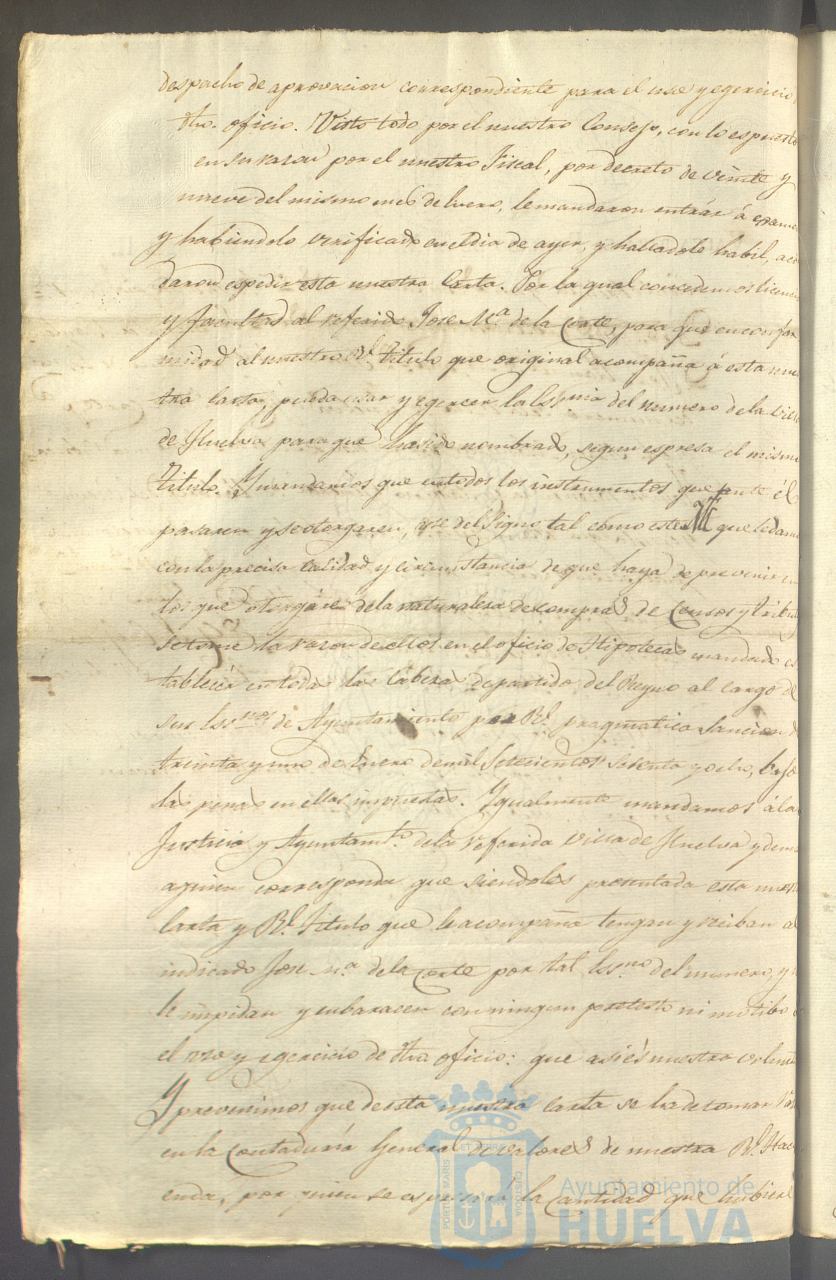 despacho de aprovacion correspondiente para el uso y egercicio
dho. oficio. Visto todo por el nuestro Consejo, con lo espuesto
en su razon por el nuestro Fiscal, por decreto de veinte y
nueve del mismo mes de Enero, le mandaron entrár á exame
y habiendolo verificado en el dia de ayer, y halladole habil, aco
daron espedir esta nuestra Carta. Por la qual concedemos licen
y facultad al referido Jose Mª. de la Corte, para que en confor
midad al nuestro Rl. titulo que original acompaña á esta nues
tra Carta, pueda usar y egercer la Essnia del numero de la Villa
de Huelva para que ha sido nombrado, segun espresa el mismo
Titulo. Y mandamos que en todos los instrumentos que ante él
pasaren y se otorgaren, use del Signo tal como este que le damos
con la precisa calidad y circunstancia de que haya de prevenir en
los que otorgáre de la naturaleza de compras de Censos y tribu
se tome la razon de ellos en el oficio de Hipotecas mandado es
tablecér en todas las Cabezas de partido del Reyno al cargo de
sus Essnos. de Ayuntamiento por Rl. pragmatica Sancion de
treinta y uno de Enero de mil Setecientos sesenta y ocho, bajo
las penas en ellas impuestas. Igualmente mandamos á la
Justicia y Ayuntamto. de la referida Villa de Huelva y demas
a quien corresponda que siendoles presentada esta nuest
Carta y Rl. Titulo que le acompaña tengan y reciban al
indicado Jose Mª. de la Corte por tal Essno. del numero, y
le impidan y embaracen con ningun pretesto ni motibo
el uso y egercicio de dho oficio: que asi es nuestra volun
Y prevenimos que de esta nuestra Carta se ha de tomar
en la Contaduría General de valores de nuestra Rl. Haci
enda, por quien se espresará la Cantidad que hubiere
PORTUS MARIS ET TERRAE CUSTODIA
Ayuntamiento de
HUELVA